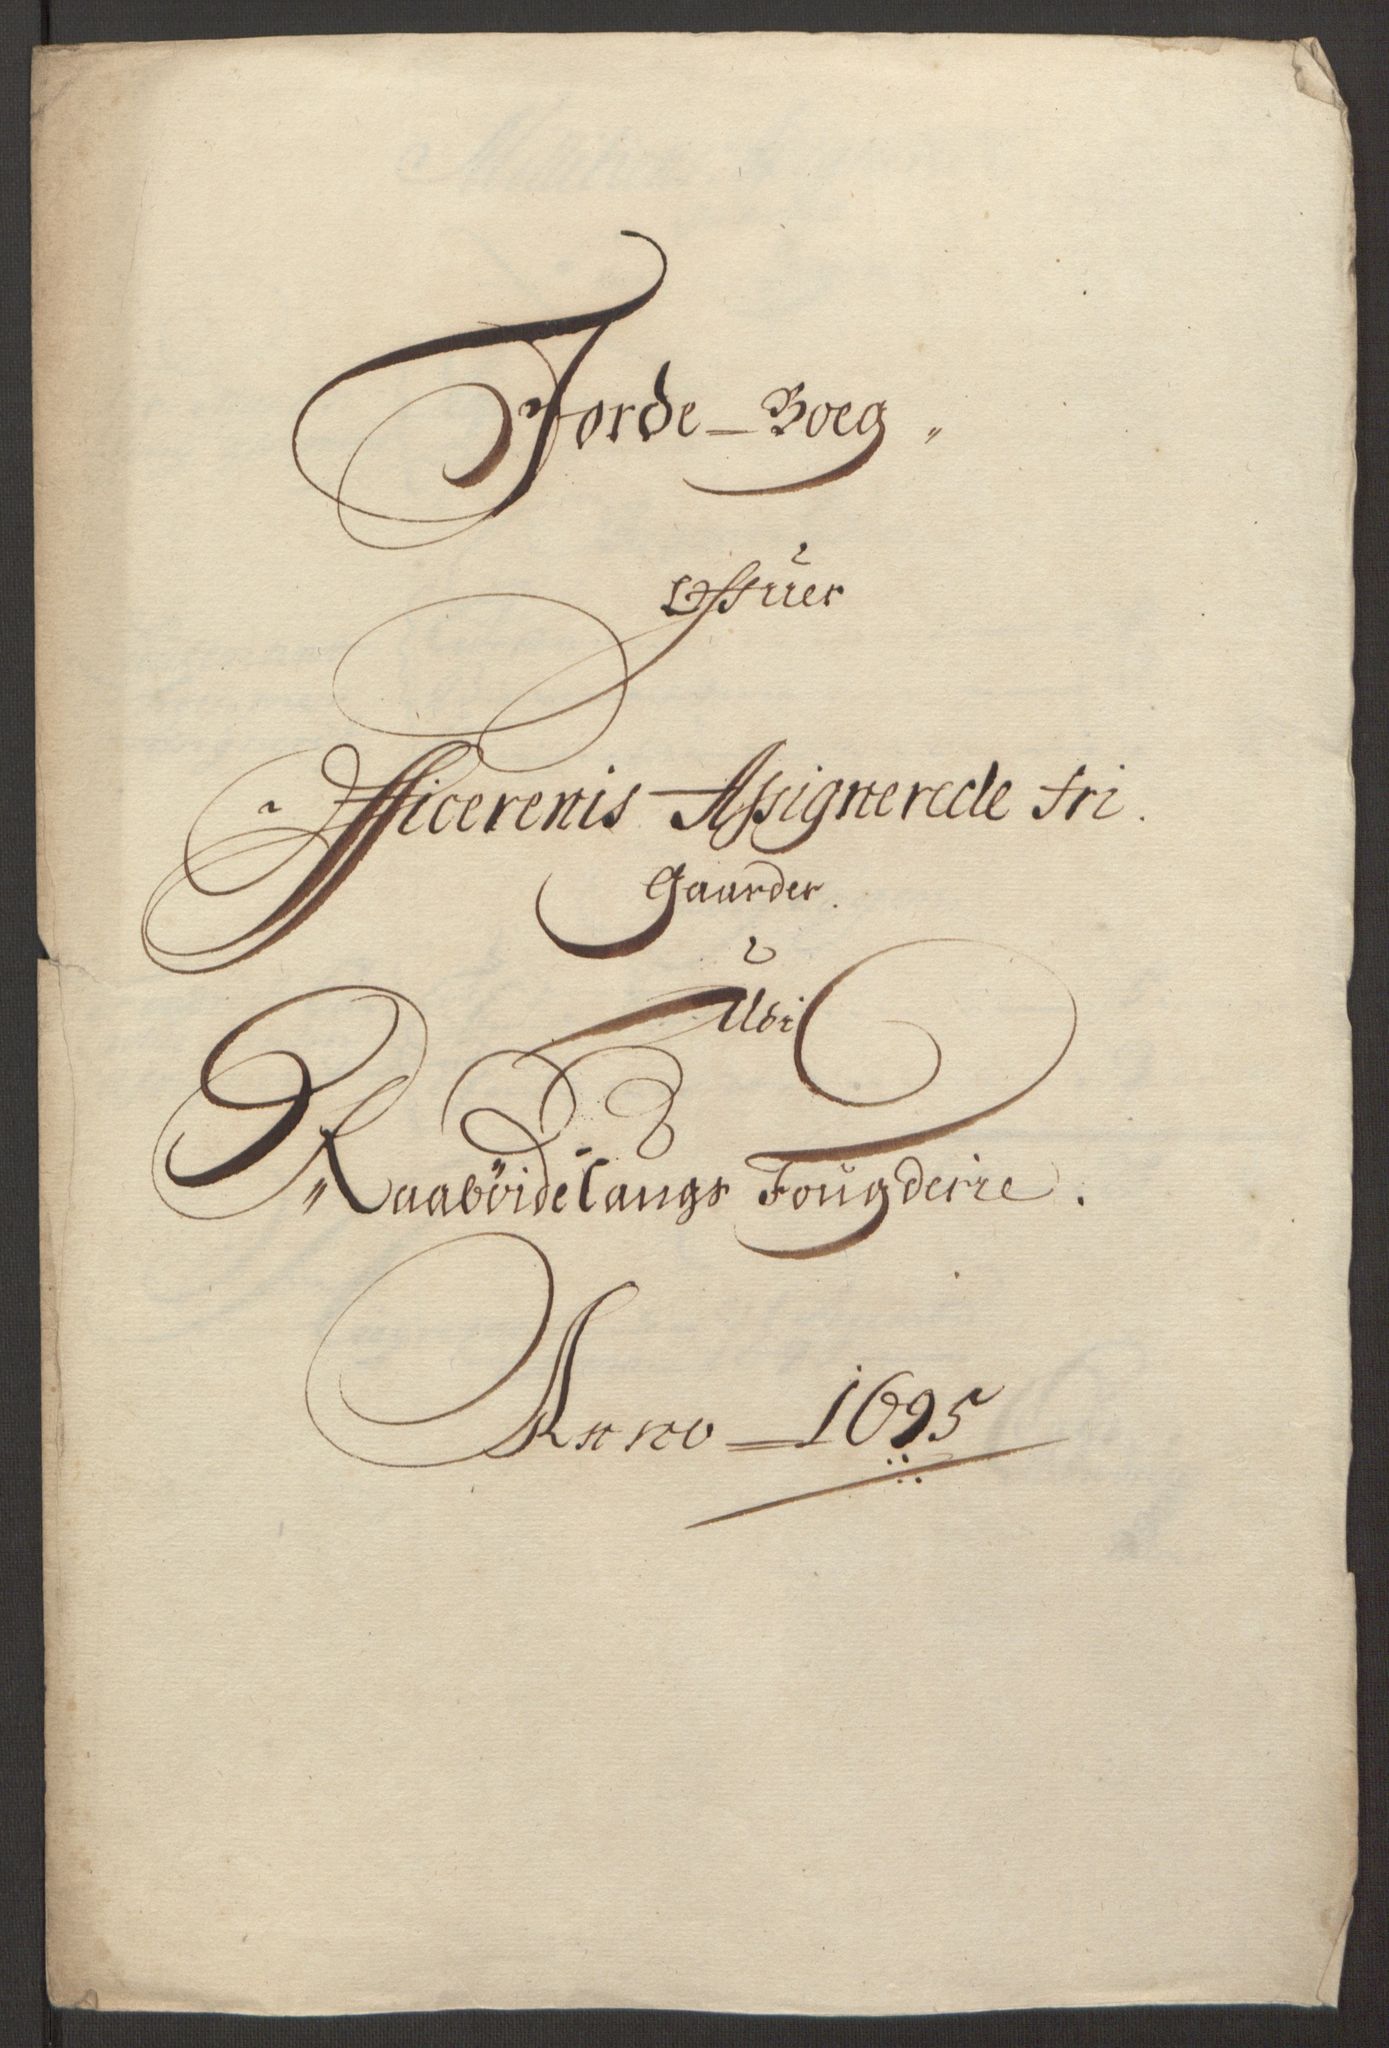 Jorde-Boeg
Offuer
Officerenis Assignerede fri
Gaarder
Udi
Raaböidelaugs Fougderie.
Anno = 1695